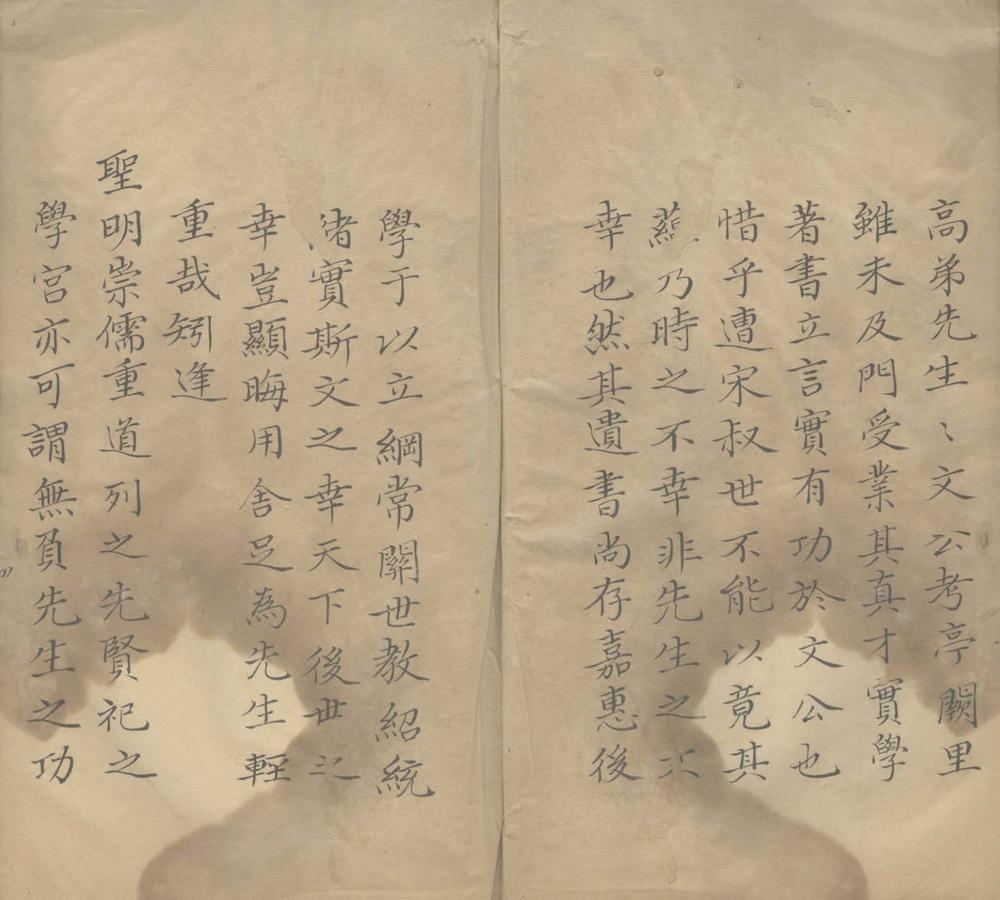 高弟先生〻文公考亭闕里
雖未及門受業其真才實學
著書立言實有功於文公也
惜乎遭宋叔世不能以竟其
蘊乃時之不幸非先生之不
幸也然其遺書尚存嘉惠後
學于以立綱常關世教紹統
緒實斯文之幸天下後世之
幸豈顯晦用舍足為先生輕
重哉矧逢
聖明崇儒重道列之先賢祀之
學宮亦可謂無負先生之功